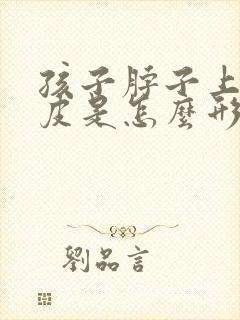 孩子脖子上
皮是怎麼形
劉品言